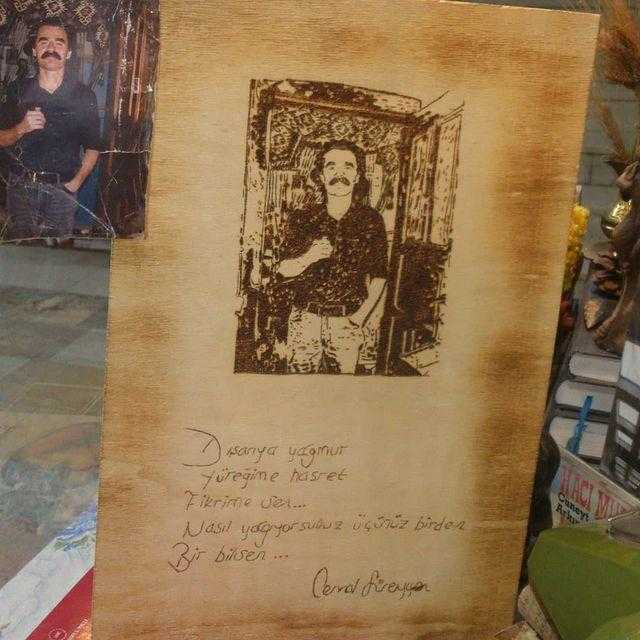 Dısarıya yağmur
Yüreğime hasret
Fikrime sen...
Nasıl yağıyorsunuz üçünüz birden
Bir bilsen...
Cemal Süreyya
HACI
Cüneyt